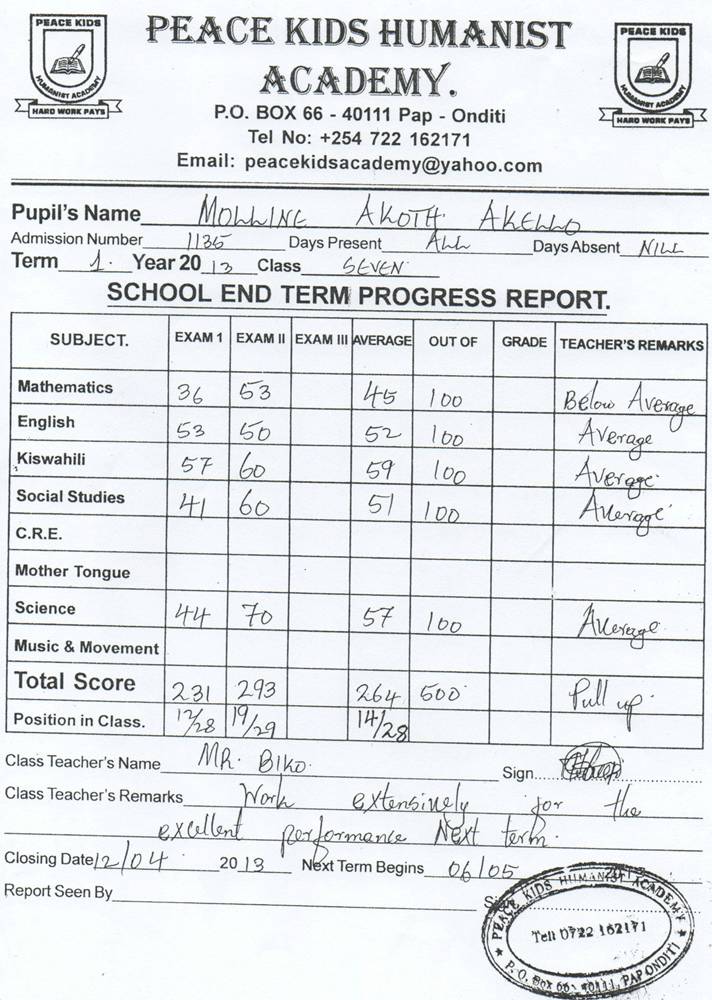 PEACE KIDS
HUMANIST ACADEMY
HARD WORK PAYS
PEACE KIDS HUMANIST
ACADEMY.
P.O. BOX 66 - 40111 Pap - Onditi
Tel No: +254 722 162171
Email: peacekidsacademy@yahoo.com
PEACE KIDS
HUMANIST ACADEMY
HARD WORK PAYS
Pupil's Name MOLLINE AKOTH AKELLO
Admission Number 1135 Days Present ALL Days Absent NILL
Term 1. Year 2013 Class SEVEN
SCHOOL END TERM PROGRESS REPORT.
SUBJECT. EXAM 1 EXAM II EXAM III AVERAGE OUT OF GRADE TEACHER'S REMARKS
Mathematics 36 53 45 100 Below Average
English 53 50 52 100 Average
Kiswahili 57 60 59 100 Average
Social Studies 41 60 51 100 Average
C.R.E.
Mother Tongue
Science 44 70 57 100 Average
Music & Movement
Total Score 231 293 264 500 Pull up.
Position in Class. 12/28 19/29 14/28
Class Teacher's Name MR. BIKO. Sign.....
Class Teacher's Remarks Work extensively for the
excellent performance Next term.
Closing Date 12/04 2013 Next Term Begins 06/05
Report Seen By
PEACE KIDS HUMANIST ACADEMY
Tell 0722 162171
P.O. Box 66 - 40111, PAP ONDITI